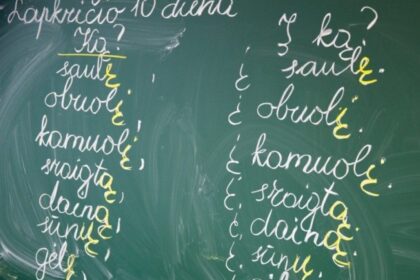 Lapkričio 10 diena
Ką?
saulę,
obuolį,
kamuolį,
sraigtą,
dainą,
sūnų,
gėlę
Į ką?
į saulę.
į obuolį.
į kamuolį.
į sraigtą.
į dainą.
į sūnų.